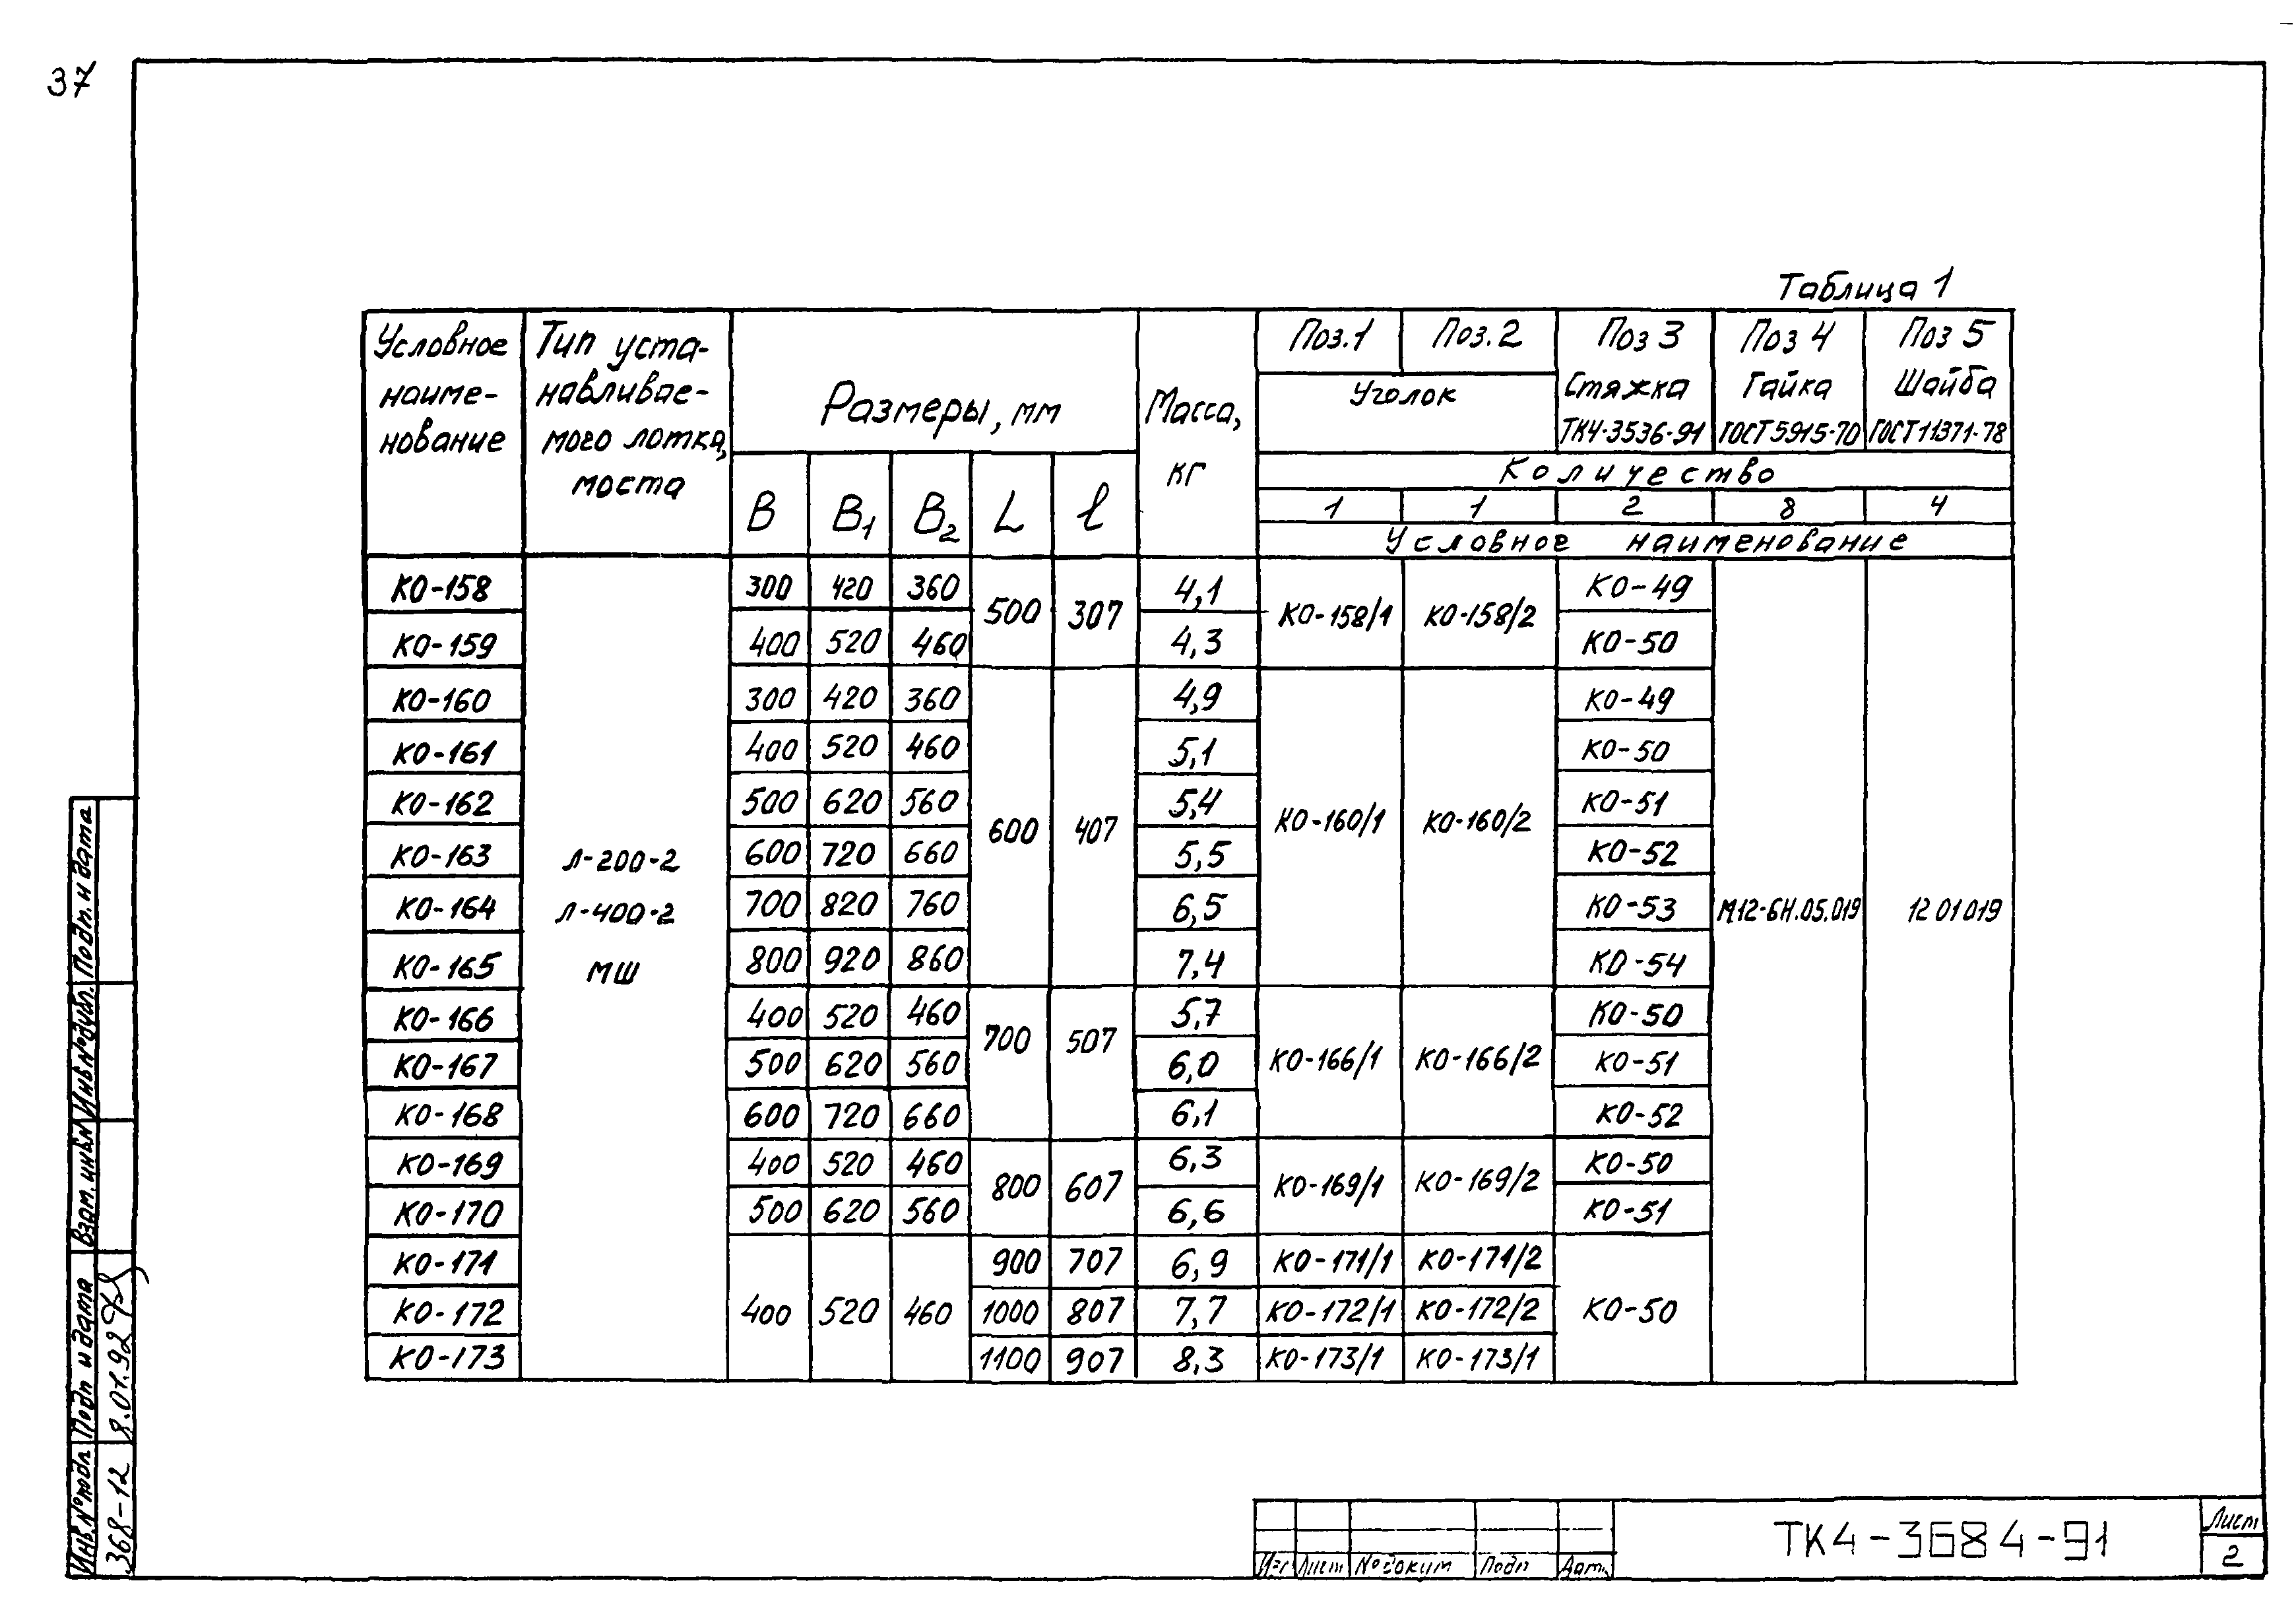 37
Таблица 1
Условное наиме- нование
Тип уста- навливае- мого лотка, моста
Размеры, мм
B B1 B2 L ℓ
Масса, кг
Поз.1 Поз.2
Уголок
Поз 3 Стяжка ТК4-3536-91
Поз 4 Гайка ГОСТ 5915-70
Поз 5 Шайба ГОСТ 11371-78
Количество
1 1 2 8 4
Условное наименование
КО-158 300 420 360 500 307 4,1 КО-158/1 КО-158/2 КО-49
КО-159 400 520 460 4,3 КО-50
КО-160 300 420 360 4,9 КО-49
КО-161 400 520 460 5,1 КО-50
КО-162 500 620 560 600 407 5,4 КО-160/1 КО-160/2 КО-51
КО-163 Л-200-2 600 720 660 5,5 КО-52
КО-164 Л-400-2 700 820 760 6,5 КО-53 М12-6Н.05.019 12 01 019
КО-165 МШ 800 920 860 7,4 КО-54
КО-166 400 520 460 700 507 5,7 КО-50
КО-167 500 620 560 6,0 КО-166/1 КО-166/2 КО-51
КО-168 600 720 660 6,1 КО-52
КО-169 400 520 460 800 607 6,3 КО-169/1 КО-169/2 КО-50
КО-170 500 620 560 6,6 КО-51
КО-171 900 707 6,9 КО-171/1 КО-171/2
КО-172 400 520 460 1000 807 7,7 КО-172/1 КО-172/2 КО-50
КО-173 1100 907 8,3 КО-173/1 КО-173/1
Инв.N°подл Подп и дата Взам.инв.N Инв.N°дубл. Подп. и дата
368-12 8.01.92
Изг Лист N°докум Подп Дат.
ТК4-3684-91
Лист
2